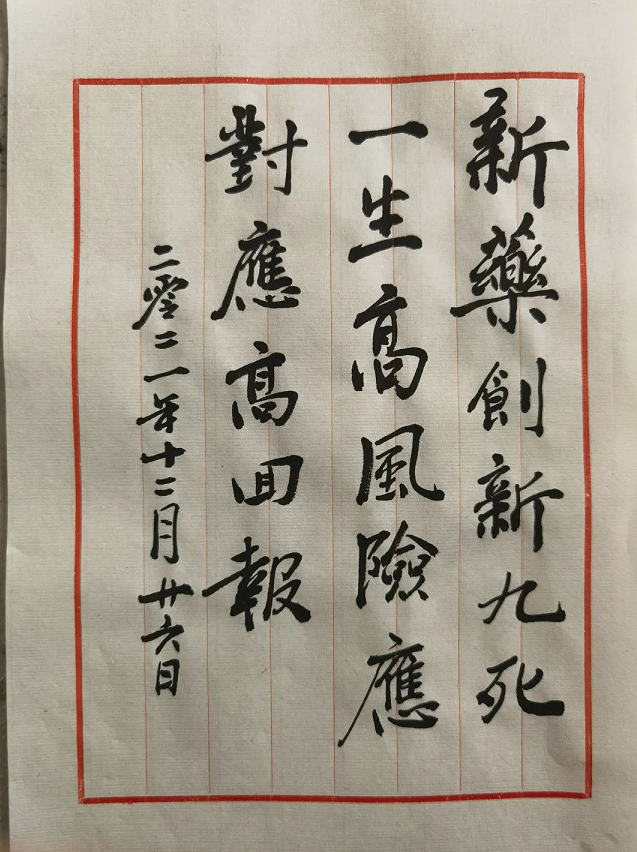 新藥創新九死
一生高風險應
對應高回報
二零二一年十二月廿六日